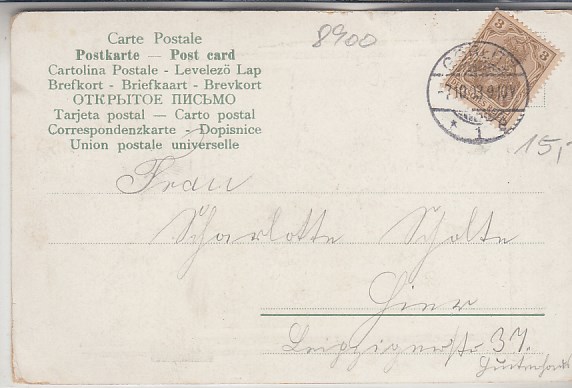 Carte Postale
Postkarte — Post card
Cartolina Postale - Levelezö Lap
Brefkort - Briefkaart - Brevkort
ОТКРЫТОЕ ПИСЬМО
Tarjeta postal — Carto postal
Correspondenzkarte - Dopisnice
Union postale universelle
8900
3 3
* 1 g
15,-
Frau
Scharlotte Scholte
Hier
Leipzigerstr 37.